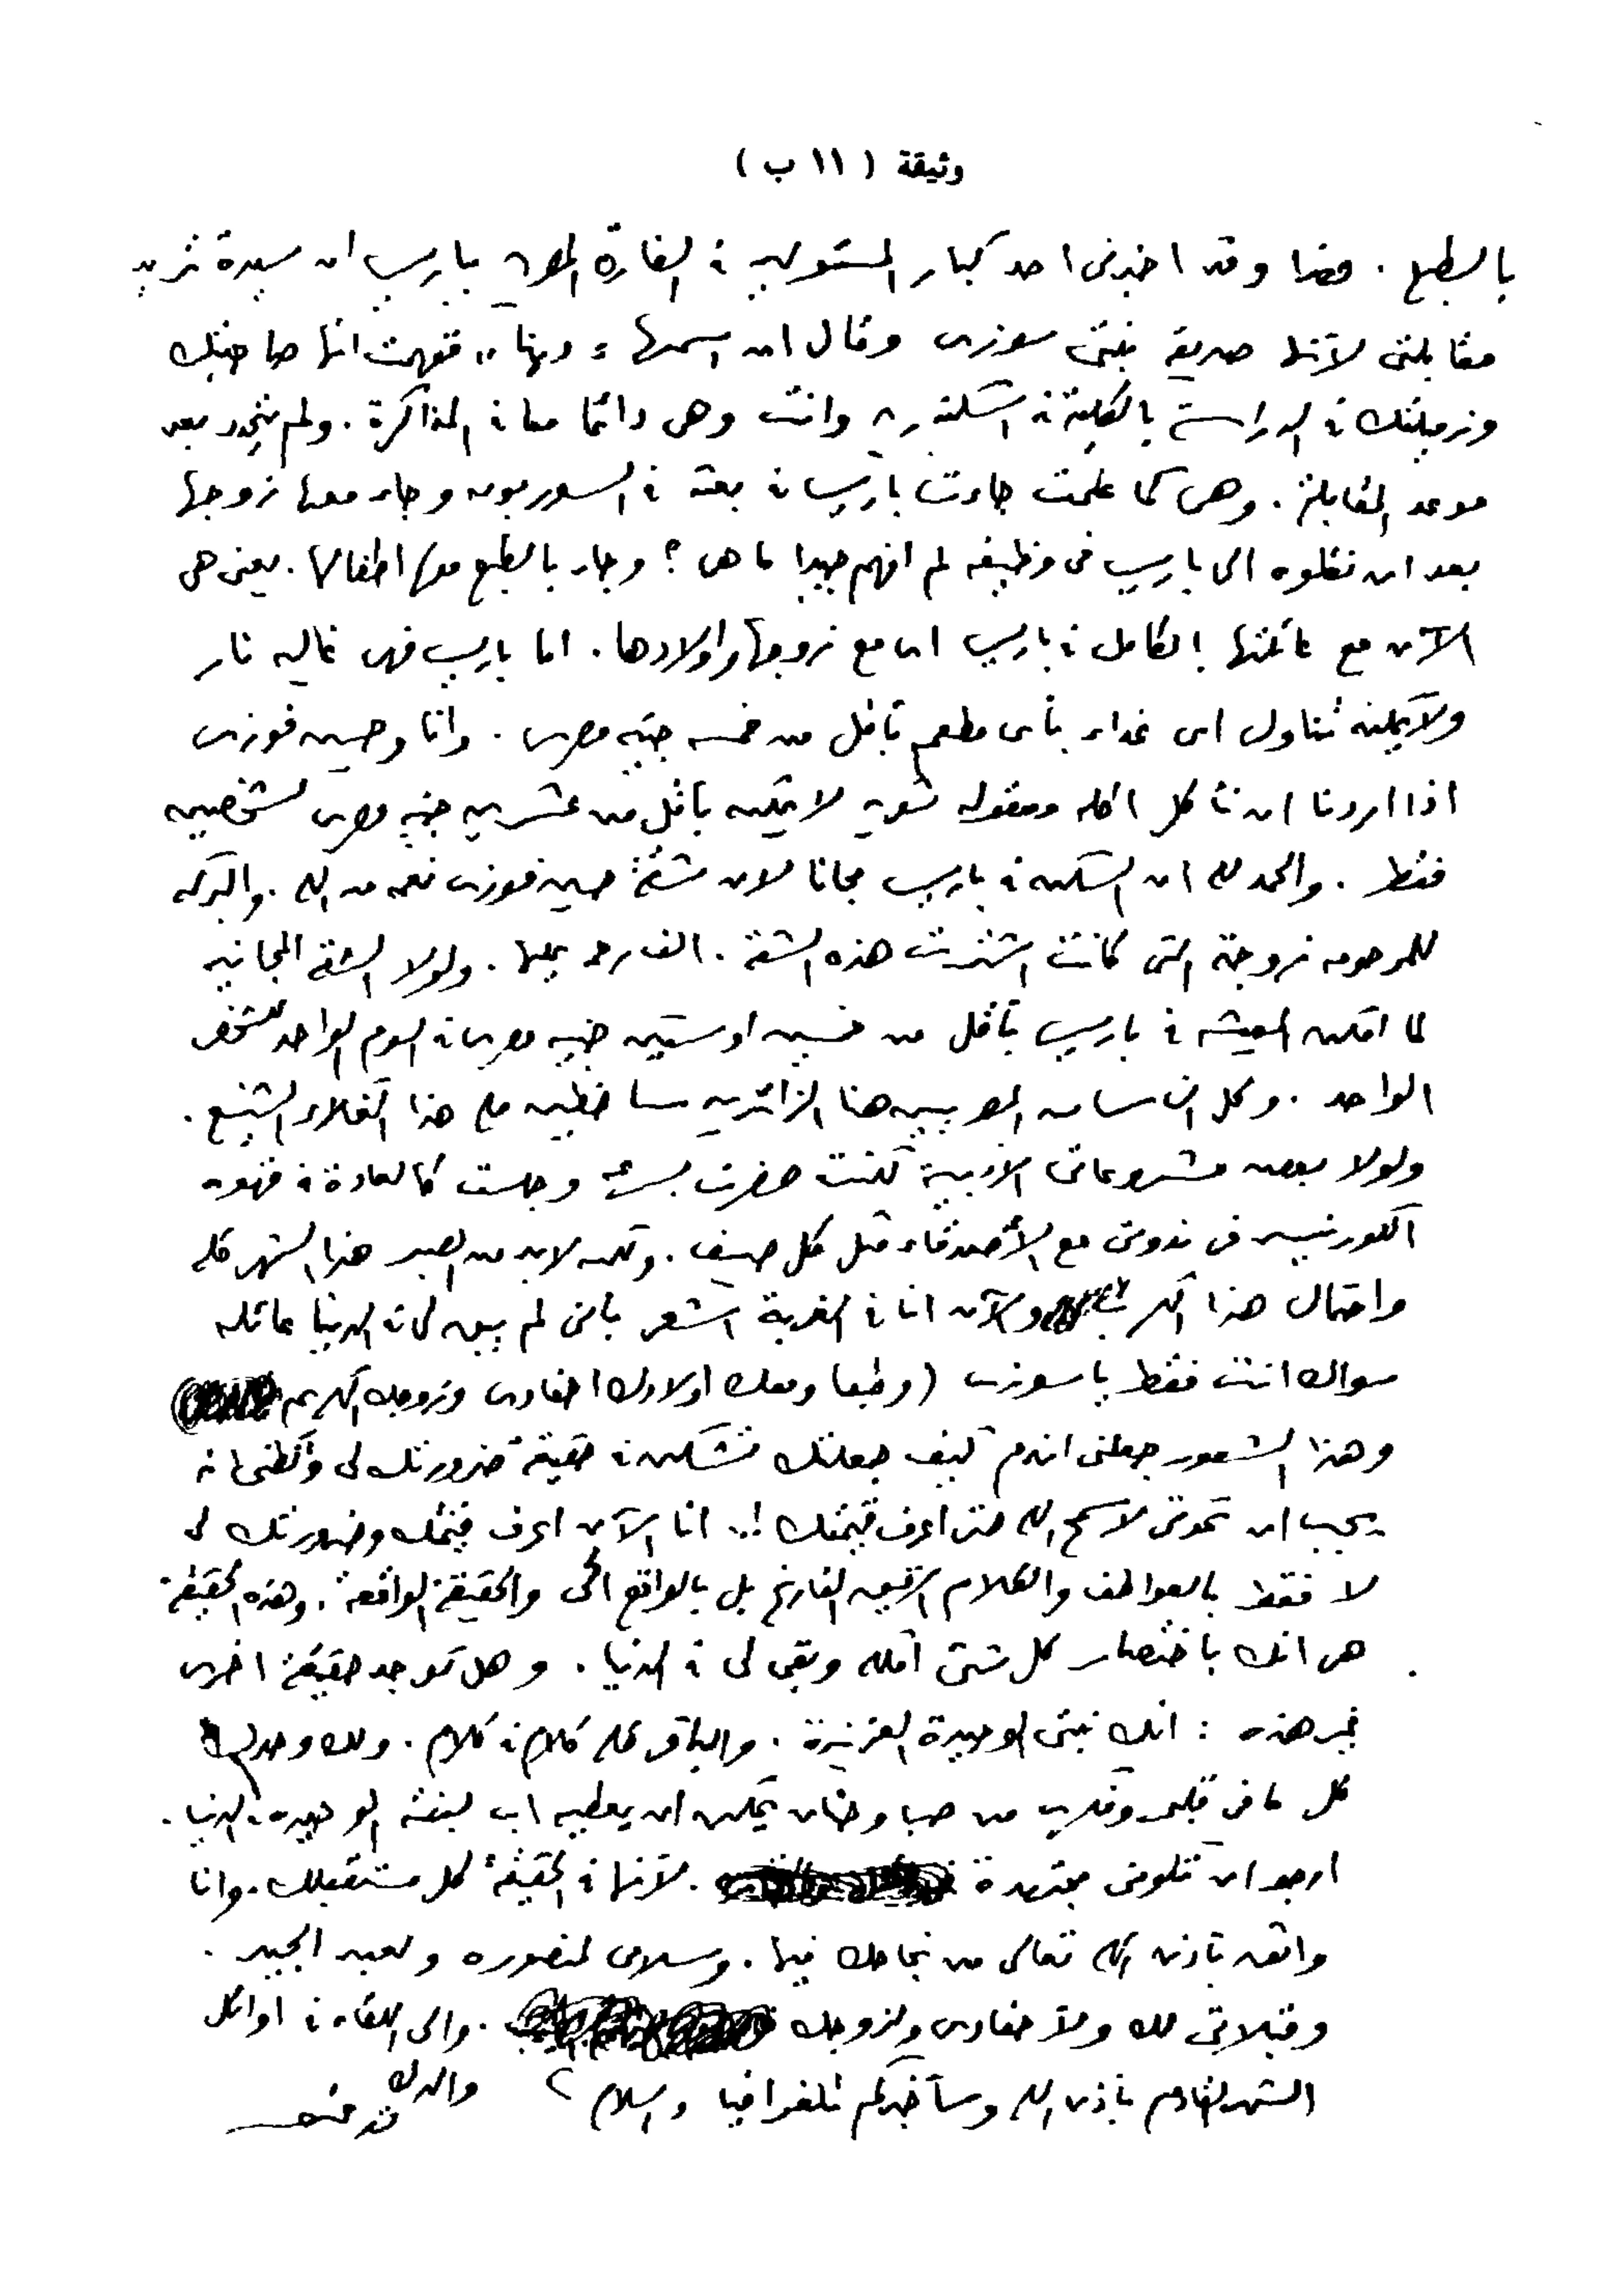 وثيقة ( ١١ ب )
بالطبع . هذا وقد اخبرنى احد كبار المسئولين فى السفارة المصرية بباريس ان سيدة تريد
مقابلتى لأنها صديقة بنتى سوزى وقال ان اسمها " دينا " ففهمت انها صاحبتك
وزميلتك فى الدراسة بالكلية فى اسكندرية وانت وهى دائما معا فى المذاكرة . ولم يتحدد بعد
موعد المقابلة . وهى كما علمت جاءت باريس فى بعثة فى السوربون وجاء معها زوجها
بعد ان نقلوه الى باريس فى وظيفه لم افهم جيدا ما هى ؟ وجاء بالطبع معها اطفالها . يعنى هى
الآن مع عائلتها بالكامل فى باريس اى مع زوجها واولادها . اما باريس فهى غاليه نار
ولا يمكن تناول اى غداء بأى مطعم بأقل من خمسه جنيه مصرى . وانا وحسين فوزى
اذا اردنا ان نأكل اكله معقوله شويه لا يمكن بأقل من عشرين جنيه مصرى لشخصين
فقط . والحمد لله ان السكن فى باريس مجانا لان شقة حسين فوزى نعمه من الله . والبركه
للمرحومه زوجته التى كانت اشترت هذه الشقة . الف رحمه عليها . ولولا الشقه المجانيه
لما امكن المعيشه فى باريس بأقل من خمسين او ستين جنيه مصرى فى اليوم الواحد للشخص
الواحد . وكل الناس المصريين هنا الزائرين ساخطين على هذا الغلاء الشنيع .
ولولا بعض مشروعاتى الادبية لكنت حضرت بسرعه وجلست كالعادة فى قهوه
الكورنيش فى ندوتى مع الأصدقاء مثل كل صيف . ولكن لابد من الصبر هذا الشهر كله
واحتمال هذا والآن انا فى الغربة اشعر بأنى لم يبق لى فى الدنيا عائله
سواك انت فقط يا سوزى (وطبعا ومعك اولادك احفادى وزوجك الكريم
وهذا الشعور جعلنى اندم كيف جعلتك تشكين فى حقيقة ضرورتك لى وانه
يجب ان تموتى لا سمح الله حتى اعرف قيمتك !.. انا الآن اعرف قيمتك وضرورتك لى
لا فقط بالعواطف والكلام الفارغ بل بالواقع الحى والحقيقة الواقعة . وهذه الحقيقة
هى انك باختصار كل شىء املكه وبقى لى فى الدنيا . وهل توجد حقيقة اخرى
غير هذه : انك بنتى الوحيدة العزيزة . والباقى كله كلام فى كلام . ولك وحدك
كل ما فى قلبى من حب وحنان يمكن ان يعطيه اب لبنته الوحيده فى الدنيا .
ارجو ان تكونى مجتهدة . لأنها فى الحقيقة كل مستقبلك . وانا
واثق بإذن الله تعالى من نجاحك فيها . وسلامى لمنصوره ولعبد المجيد .
وقبلاتى لك ولأحفادى ولزوجك . والى اللقاء فى اوائل
الشهر القادم بإذن الله وسأخبركم تلغرافيا والسلام
والدك